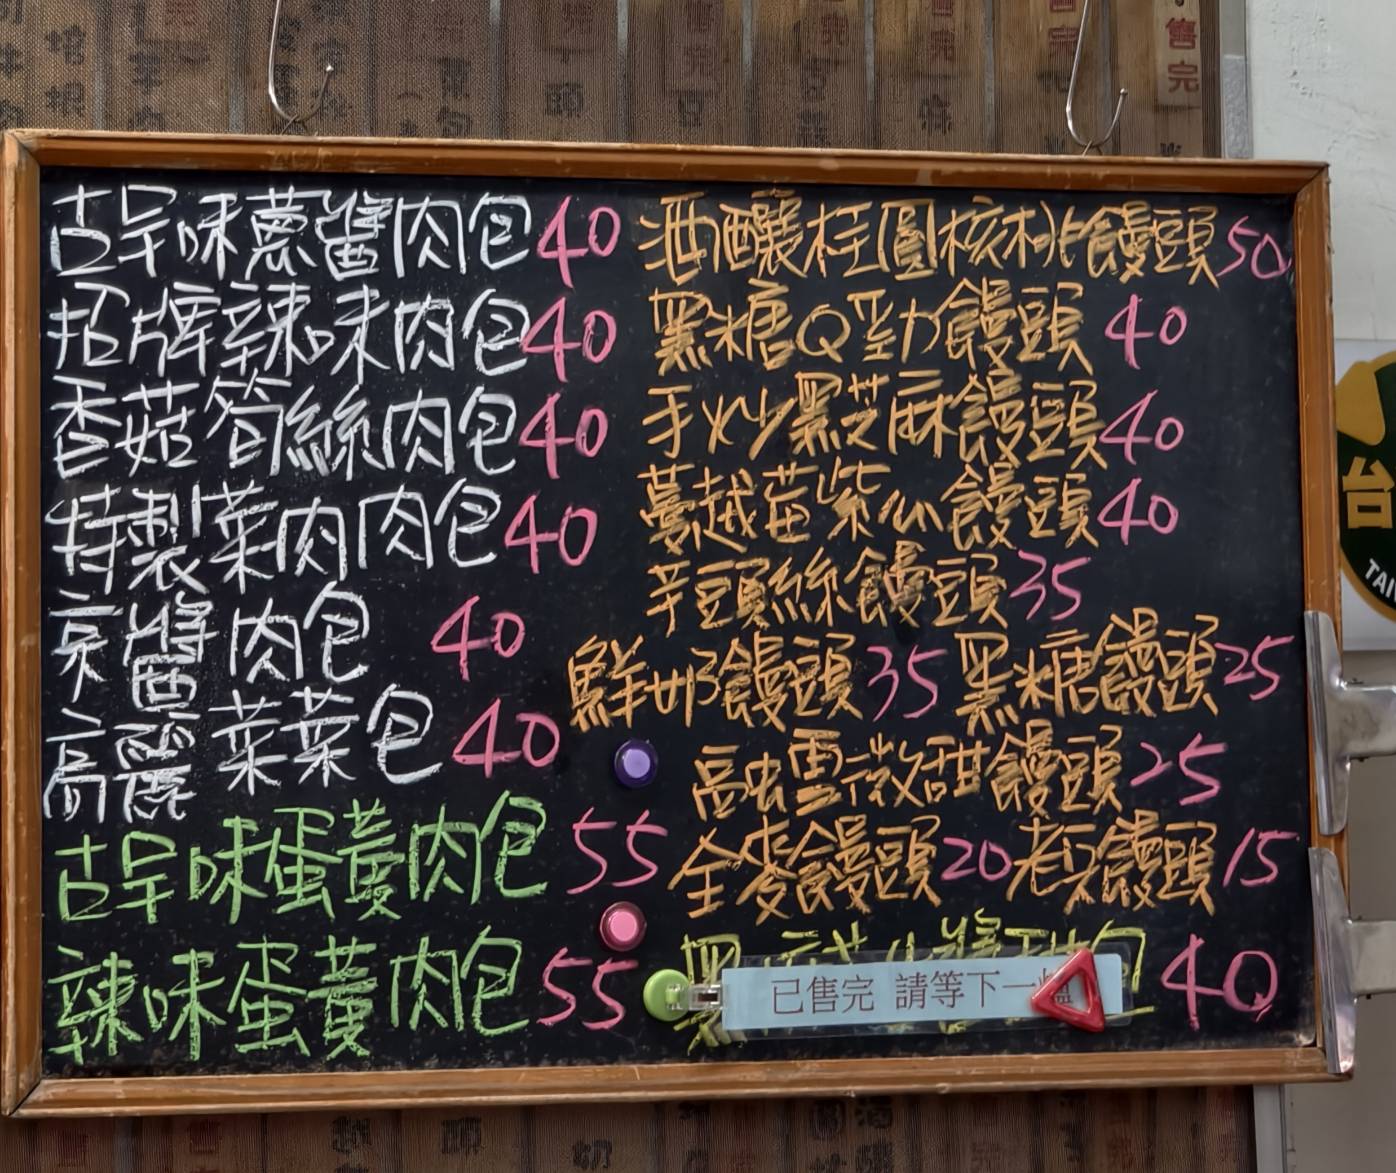 古早味蔥醬肉包 40
招牌辣味肉包 40
香菇筍絲肉包 40
特製菜肉肉包 40
京醬肉包 40
高麗菜菜包 40
古早味蛋黃肉包 55
辣味蛋黃肉包 55
酒釀桂圓核桃饅頭 50
黑糖Q勁饅頭 40
手炒黑芝麻饅頭 40
蔓越莓紫心饅頭 40
芋頭絲饅頭 35
鮮奶饅頭 35 黑糖饅頭 25
微甜饅頭 25
全麥饅頭 20 老饅頭 15
包 40
已售完 請等下一爐
售完
台
TAI